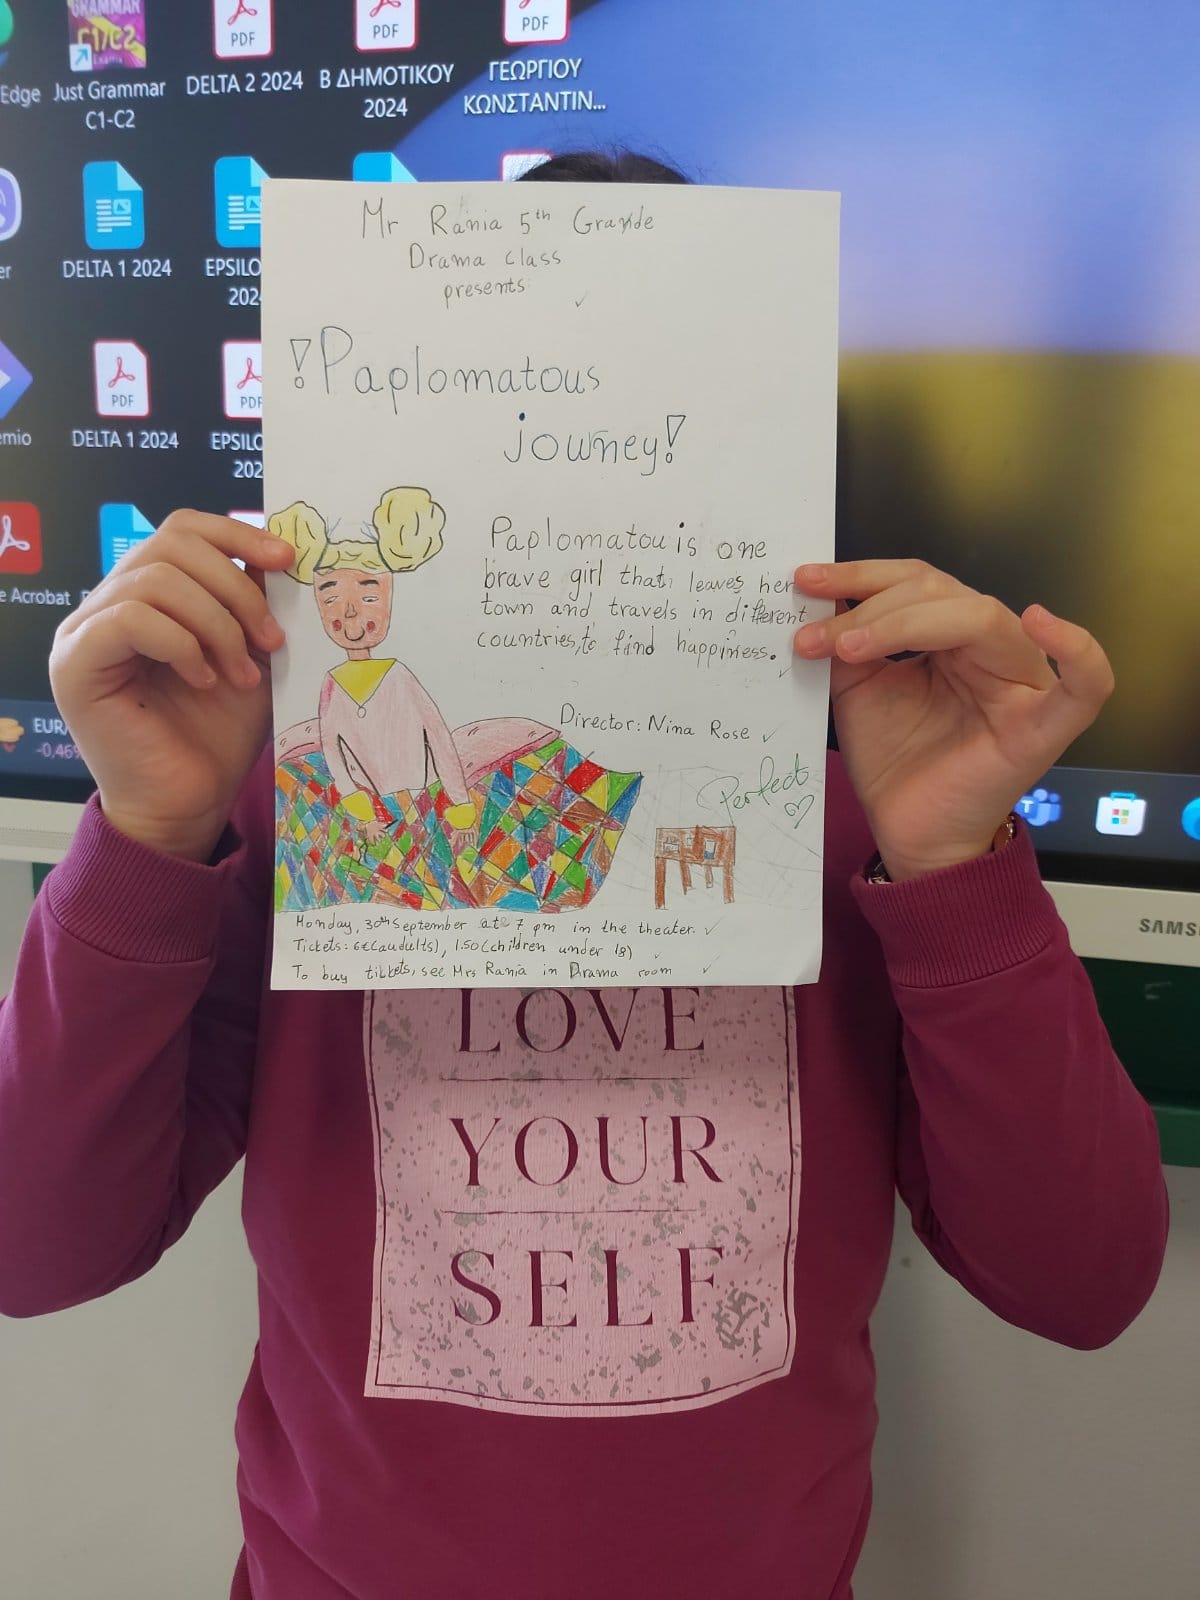 GRAMMAR
C1/C2
PDF
PDF
PDF
Edge
Just Grammar
C1-C2
DELTA 2 2024
Β ΔΗΜΟΤΙΚΟΥ
2024
ΓΕΩΡΓΙΟΥ
ΚΩΝΣΤΑΝΤΙΝ...
DELTA 1 2024
EPSILO
202
PDF
PDF
DELTA 1 2024
EPSILO
202
Acrobat
EUR/
-0,46%
Mr Rania 5th Grade
Drama class
presents:
!Paplomatous
journey!
Paplomatou is one
brave girl that leaves her
town and travels in different
countries, to find happiness.
Director: Nina Rose
Perfect
Monday, 30th September at 7 pm in the theater.
Tickets: 6€(audults), 1.50(children under 18)
To buy tickets, see Mrs Rania in Drama room
SAMS
LOVE
YOUR
SELF